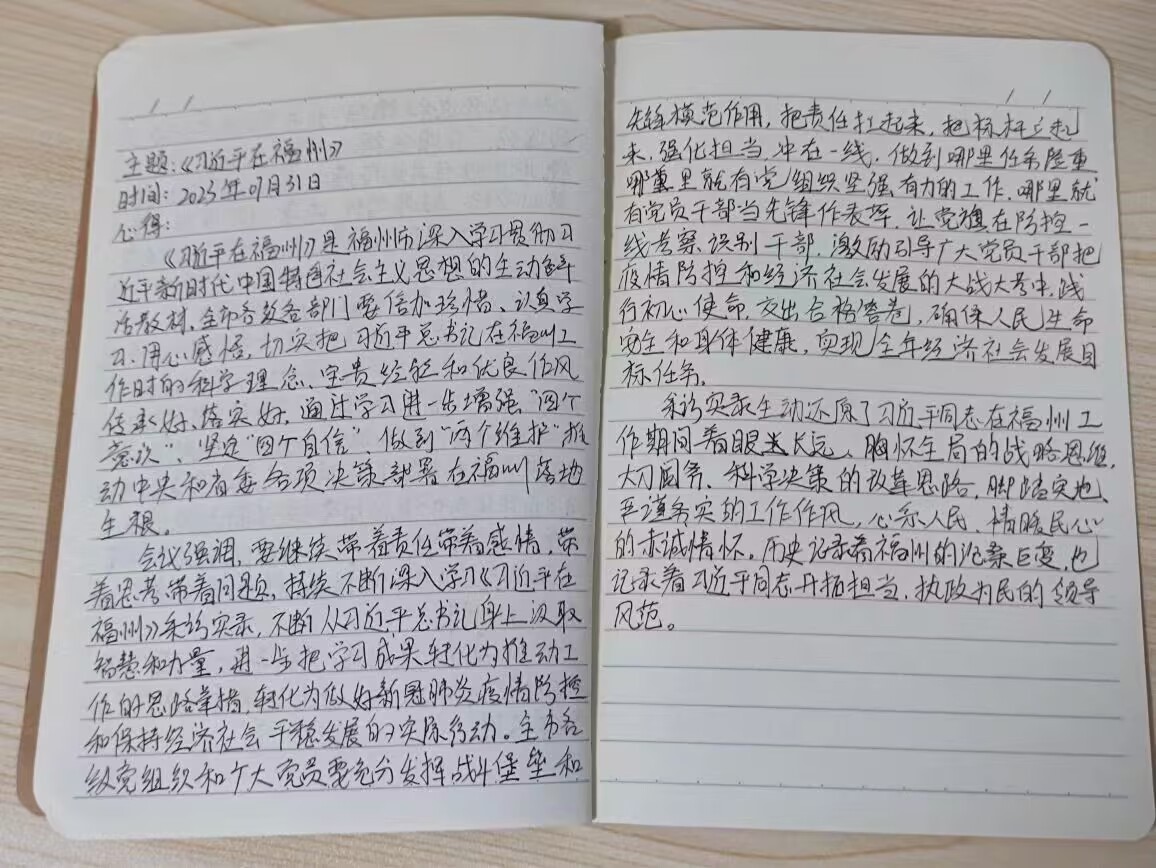 主题:《习近平在福州》
时间: 2023年07月31日
心得:
《习近平在福州》是福州市深入学习贯彻习
近平新时代中国特色社会主义思想的生动鲜
活教材,全市各级各部门要倍加珍惜、认真学
习、用心感悟,切实把习近平总书记在福州工
作时的科学理念、宝贵经验和优良作风
传承好、落实好,通过学习进一步增强“四个
意识”、坚定“四个自信”、做到“两个维护”,推
动中央和省委各项决策部署在福州落地
生根。
会议强调,要继续带着责任带着感情,带
着思考带着问题,持续不断深入学习《习近平在
福州》采访实录,不断从习近平总书记身上汲取
智慧和力量,进一步把学习成果转化为推动工
作的思路举措,转化为做好新冠肺炎疫情防控
和保持经济社会平稳发展的实际行动。全市各
级党组织和广大党员要充分发挥战斗堡垒和
先锋模范作用,把责任扛起来,把标杆立起
来,强化担当,冲在一线,做到哪里任务险重
哪里就有党组织坚强有力的工作,哪里就
有党员干部当先锋作表率,让党旗在防控一
线考察识别干部,激励引导广大党员干部把
疫情防控和经济社会发展的大战大考中,践
行初心使命,交出合格答卷,确保人民生命
安全和身体健康,实现全年经济社会发展目
标任务。
采访实录生动还原了习近平同志在福州工
作期间着眼长远、胸怀全局的战略思维,
大刀阔斧、科学决策的改革思路,脚踏实地、
严谨务实的工作作风,心系人民、情暖民心
的赤诚情怀。历史记录着福州的沧桑巨变,也
记录着习近平同志开拓担当、执政为民的领导
风范。